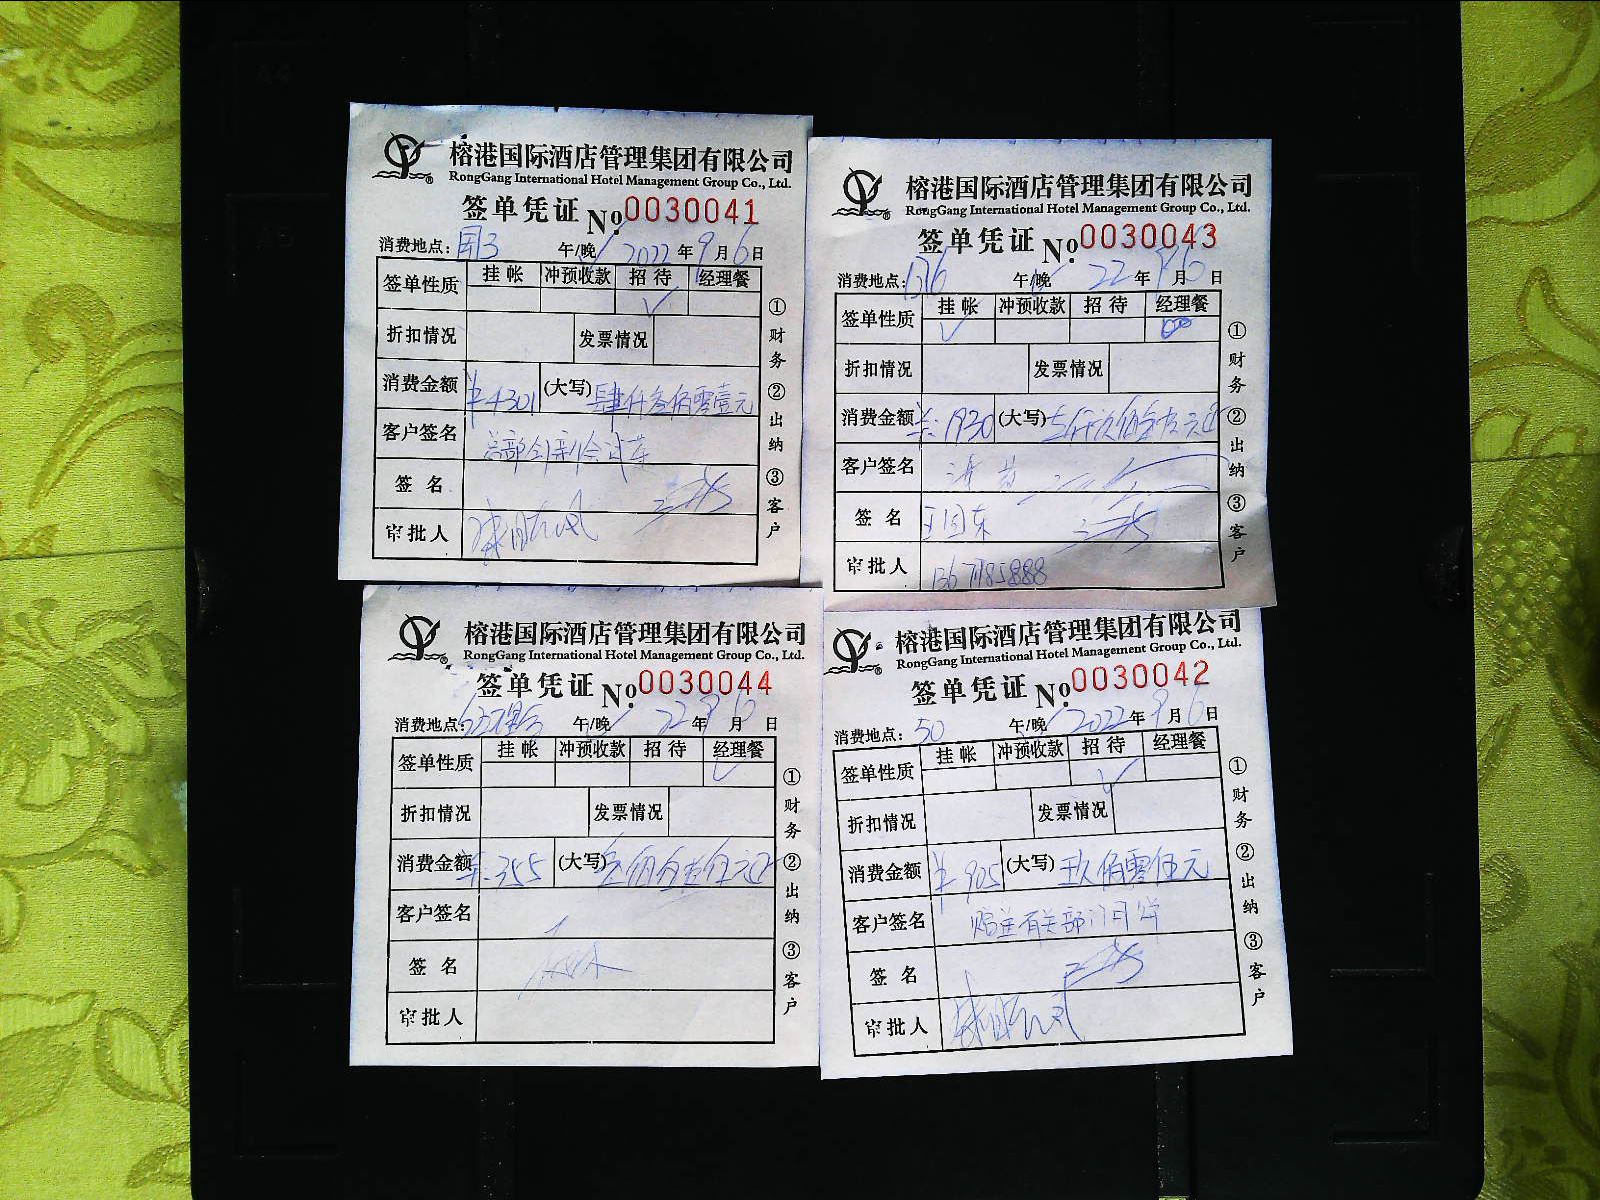 榕港国际酒店管理集团有限公司
RongGang International Hotel Management Group Co., Ltd.
签单凭证 №:0030041
消费地点: 午/晚 2022年9月6日
签单性质 挂帐 冲预收款 招待 经理餐
折扣情况 发票情况
消费金额 ¥4301 (大写) 肆仟叁佰零壹元
客户签名
签名
审批人
①财务 ②出纳 ③客户
榕港国际酒店管理集团有限公司
RongGang International Hotel Management Group Co., Ltd.
签单凭证 №:0030043
消费地点: 午/晚 22年9月6日
签单性质 挂帐 冲预收款 招待 经理餐
折扣情况 发票情况
消费金额 (大写)
客户签名
签名
审批人
①财务 ②出纳 ③客户
榕港国际酒店管理集团有限公司
RongGang International Hotel Management Group Co., Ltd.
签单凭证 №:0030044
消费地点: 午/晚 22年9月6日
签单性质 挂帐 冲预收款 招待 经理餐
折扣情况 发票情况
消费金额 ¥:355 (大写)
客户签名
签名
审批人
①财务 ②出纳 ③客户
榕港国际酒店管理集团有限公司
RongGang International Hotel Management Group Co., Ltd.
签单凭证 №:0030042
消费地点: 50 午/晚 2022年9月6日
签单性质 挂帐 冲预收款 招待 经理餐
折扣情况 发票情况
消费金额 ¥905 (大写) 玖佰零伍元
客户签名 赠送有关部门月饼
签名
审批人
①财务 ②出纳 ③客户